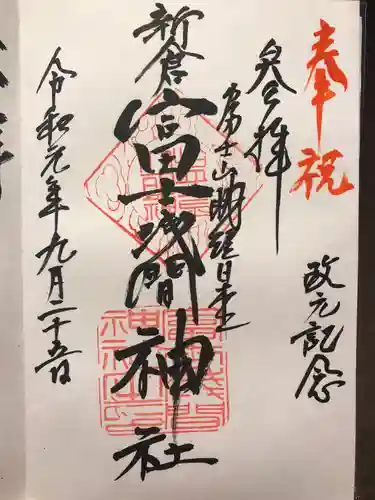 奉祝
改元記念
参拝
冨士山眺望日本一
新倉
富士浅間神社
令和元年九月二十五日